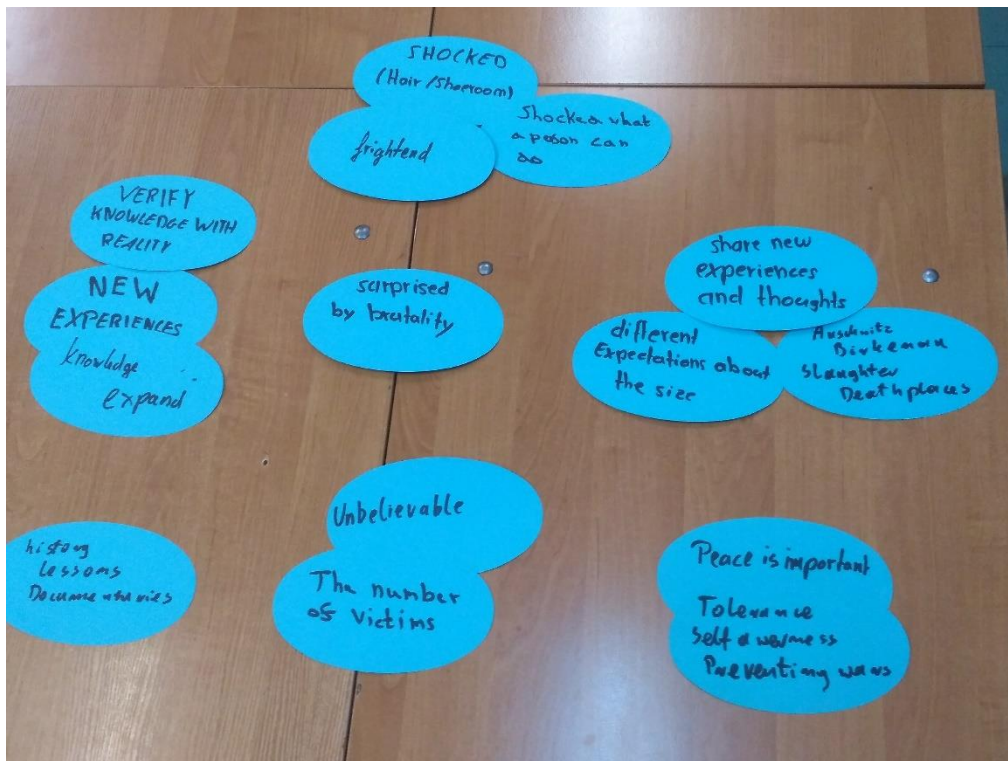 SHOCKED
(Hair/Shoeroom)
frightend
Shocked what
a person can
do
VERIFY
KNOWLEDGE WITH
REALITY
NEW
EXPERIENCES
knowledge
expand
surprised
by brutality
share new
experiences
and thoughts
different
Expectations about
the size
Auschwitz
Birkenau
Slaughter
Deathplaces
history
lessons
Documentaries
Unbelievable
The number
of victims
Peace is important
Tolerance
Self awerness
Preventing wars